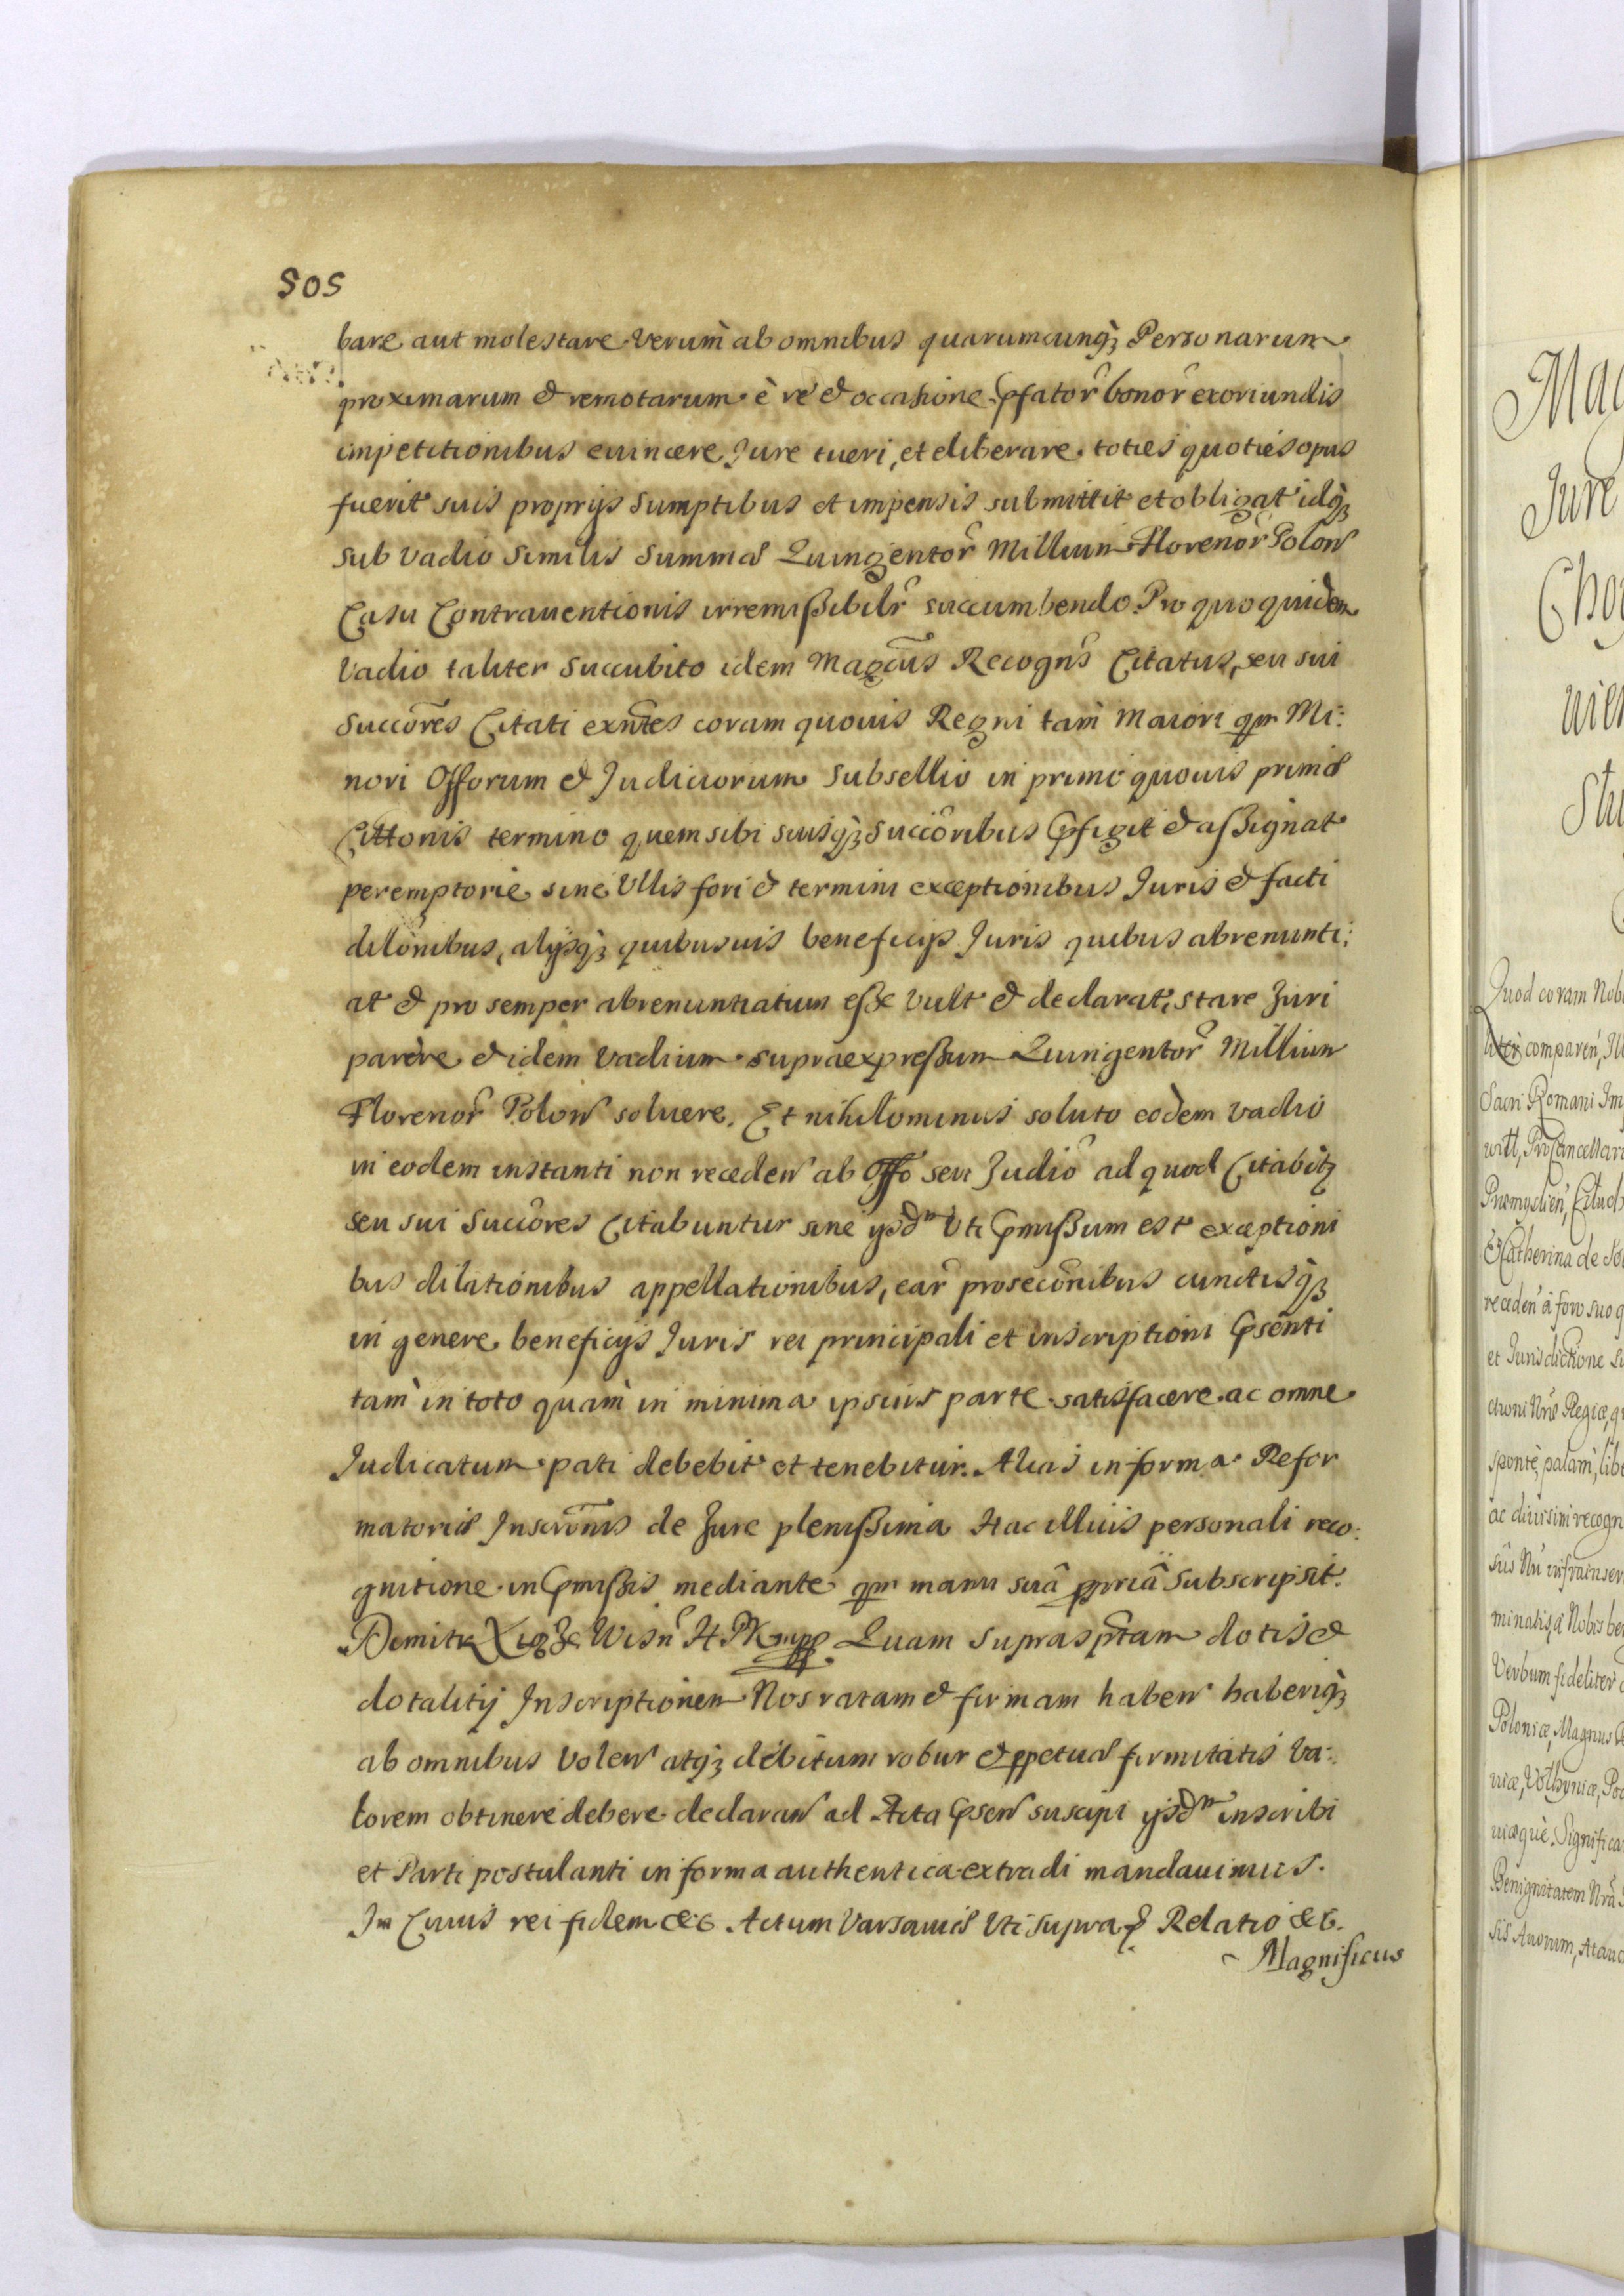 505
bare aut molestare. Verum ab omnibus quarumcunq3 Personarum
proximarum & remotarum è re & occasione pfator bonor exoriundis
impetitionibus euincere Jure tueri, et eliberare toties quoties opus
fuerit suis proprijs Sumptibus et impensis submittit et obligat idq3
sub Vadio Similis Summæ Quingentor Millium Florenor Polon
Casu Contrauentionis irremißibilr succumbendo. Pro quo quidem
Vadio taliter Succubito idem Magcus Recogns Citatus, seu sui
Succores Citati exntes coram quouis Regni tam Maiori qm Mi:
nori Offorum & Judiciorum Subsellio in primo quouis primæ
Cittonis termino quem sibi suisq3 Succoribus pfigit & aßignat
peremptorie sine Vllis fori & termini exceptionibus Juris & facti
dilonibus, alijsq3 quibusuis beneficijs Juris quibus abrenunti:
at & pro semper abrenuntiatum eße Vult & declarat, stare Juri
parere & idem Vadium supraexpreßum Quingentor Millium
Florenor Polon soluere. Et nihilominus soluto eodem vadio
in eodem instanti non receden ab Offo seu Judio ad quod Citabitz
seu sui Succores Citabuntur sine ijsdm Vti pmißum est exceptioni
bus dilationibus appellationibus, ear proseconibus cunctisq3
in genere beneficijs Juris rei principali et inscriptioni psenti
tam in toto quam in minima ipsius parte satisfacere ac omne
Judicatum pati debebit et tenebitur. Alias in forma Refor
matoriæ Inscronis de Jure plenißima Hac illius personali reco:
gnitione in pmißis mediante qm manu suâ ppriâ Subscripsit.
Demitr Xiąże Wisn H P K mpp Quam suprasptam dotis &
dotalitij Inscriptionem Nos ratam & firmam haben haberiq3
ab omnibus Volen atq3 debitum robur & ppetuæ firmitatis Va:
lorem obtinere debere declaran ad Acta psen suscipi ijsdm inscribi
et Parti postulanti in forma authentica extradi mandauimus.
In Cuius rei fidem &c Actum Varsauiæ Vti supra Relatio &c.
Magnificus
Jure
Quod coram Nob
comparen, Ill
Sacri Romani Im
Procancellari
Catherina de
receden à foro suo q
et Jurisdictione Su
ctioni Nræ Regiæ, q
sponte, palam, libe
ac diuisim recogn
minatis, à Nobis be
Verbum fideliter
Poloniæ, Magnus
uiæ, Volhyniæ, Pod
uiæque. Significa
Benignitatem Nra
sis Auorum, Atauo